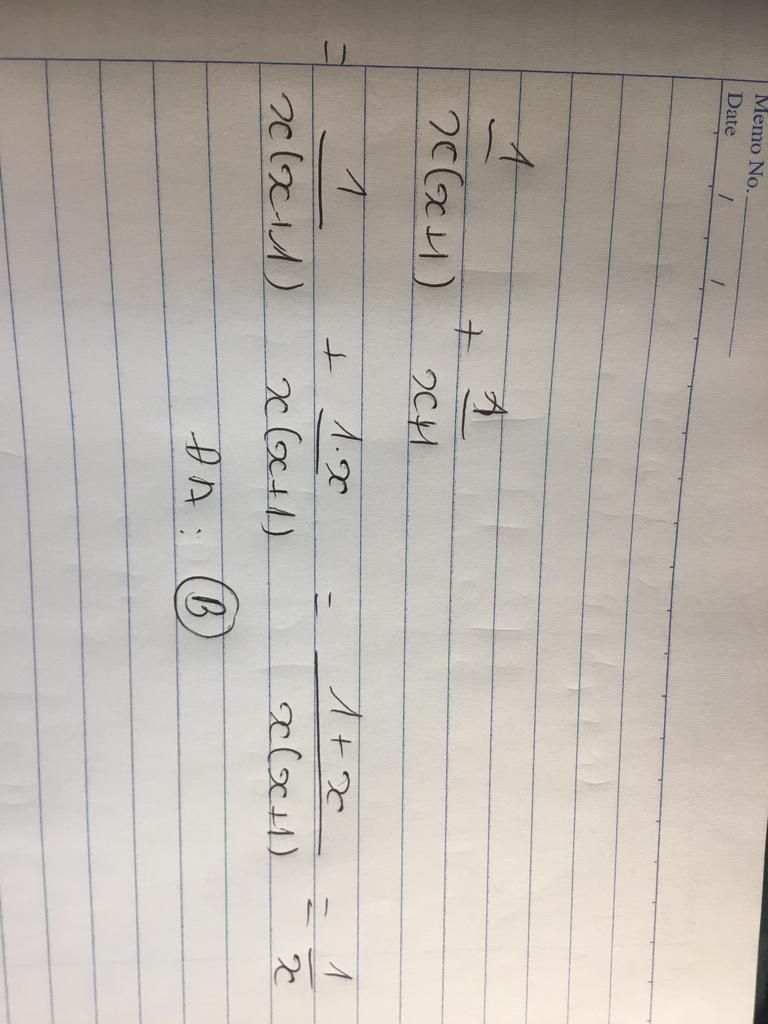 Memo No.
Date / /
1/x(x+1) + 1/x+1
= 1/x(x+1) + 1.x/x(x+1) = 1+x/x(x+1) = 1/x
ĐA : B